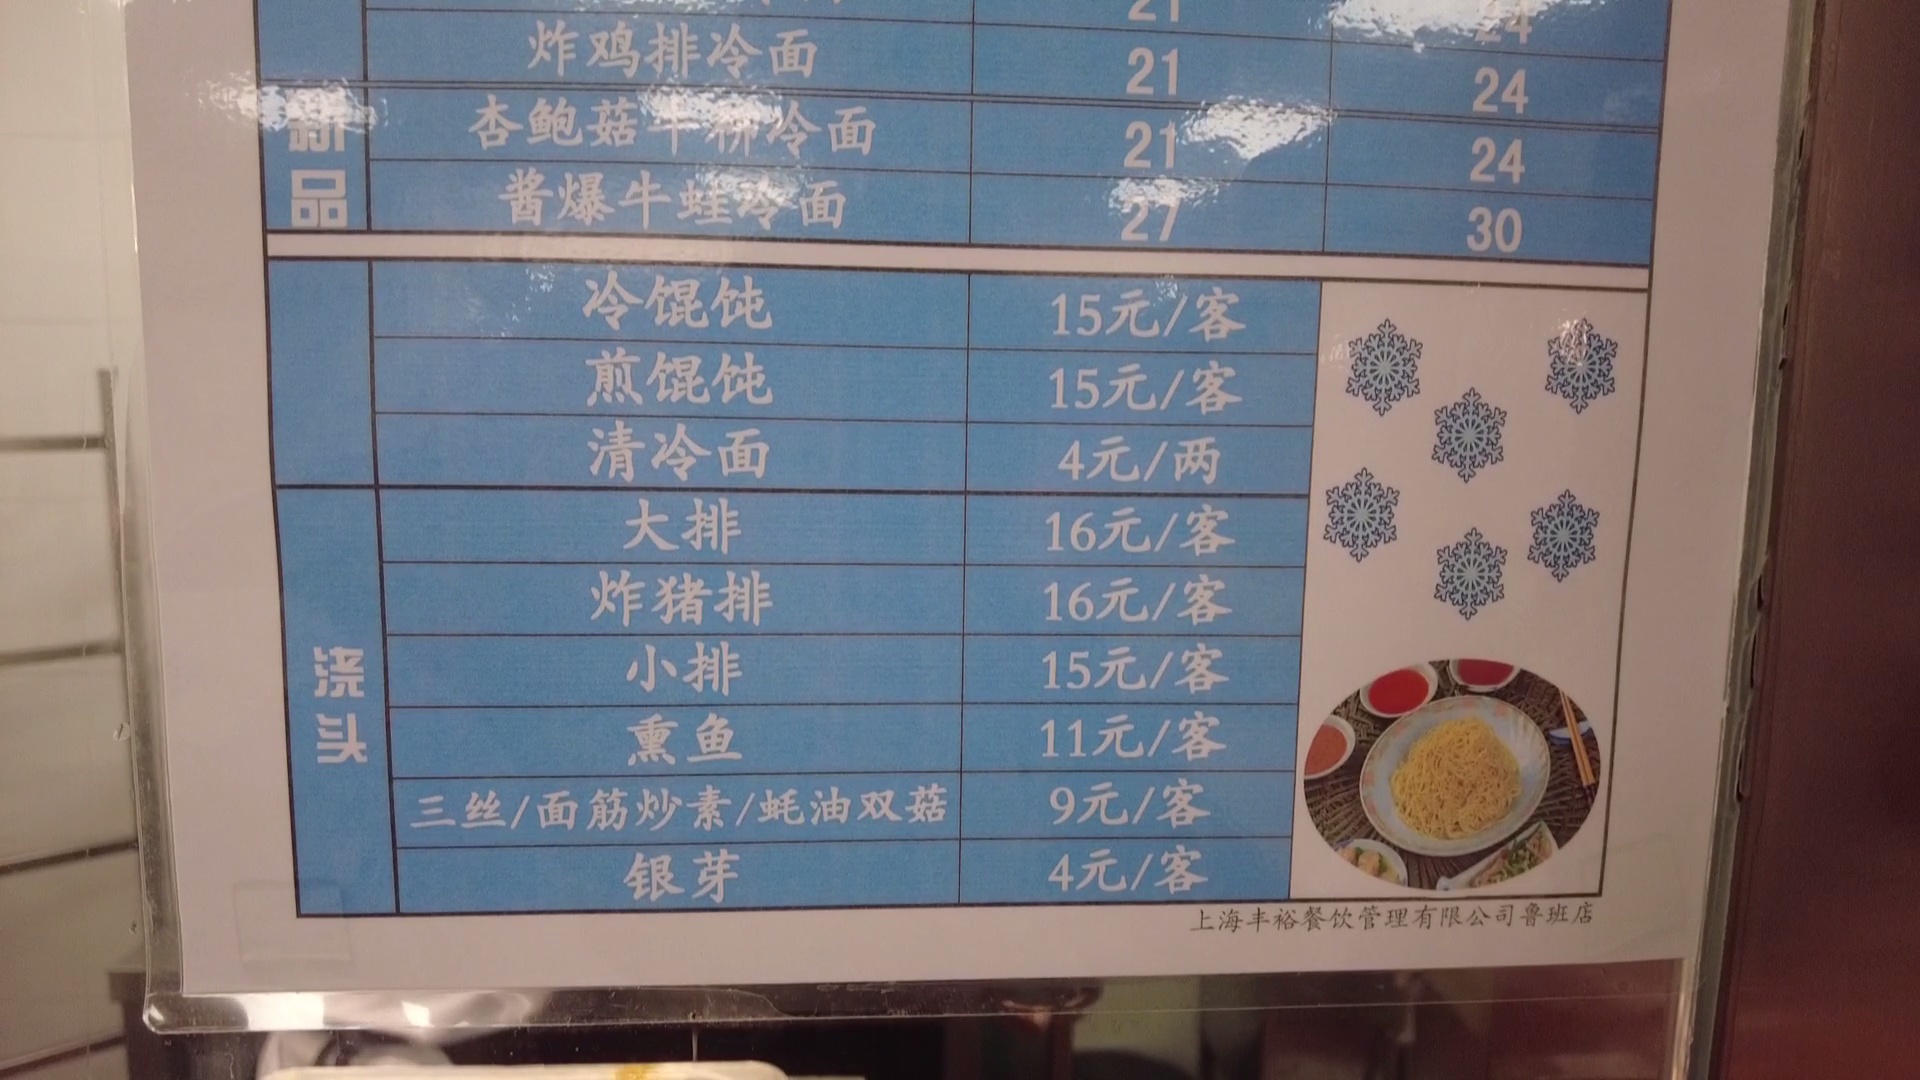 21 24
炸鸡排冷面 21 24
新品
杏鲍菇牛柳冷面 21 24
酱爆牛蛙冷面 27 30
冷馄饨 15元/客
煎馄饨 15元/客
清冷面 4元/两
浇头
大排 16元/客
炸猪排 16元/客
小排 15元/客
熏鱼 11元/客
三丝/面筋炒素/蚝油双菇 9元/客
银芽 4元/客
上海丰裕餐饮管理有限公司鲁班店